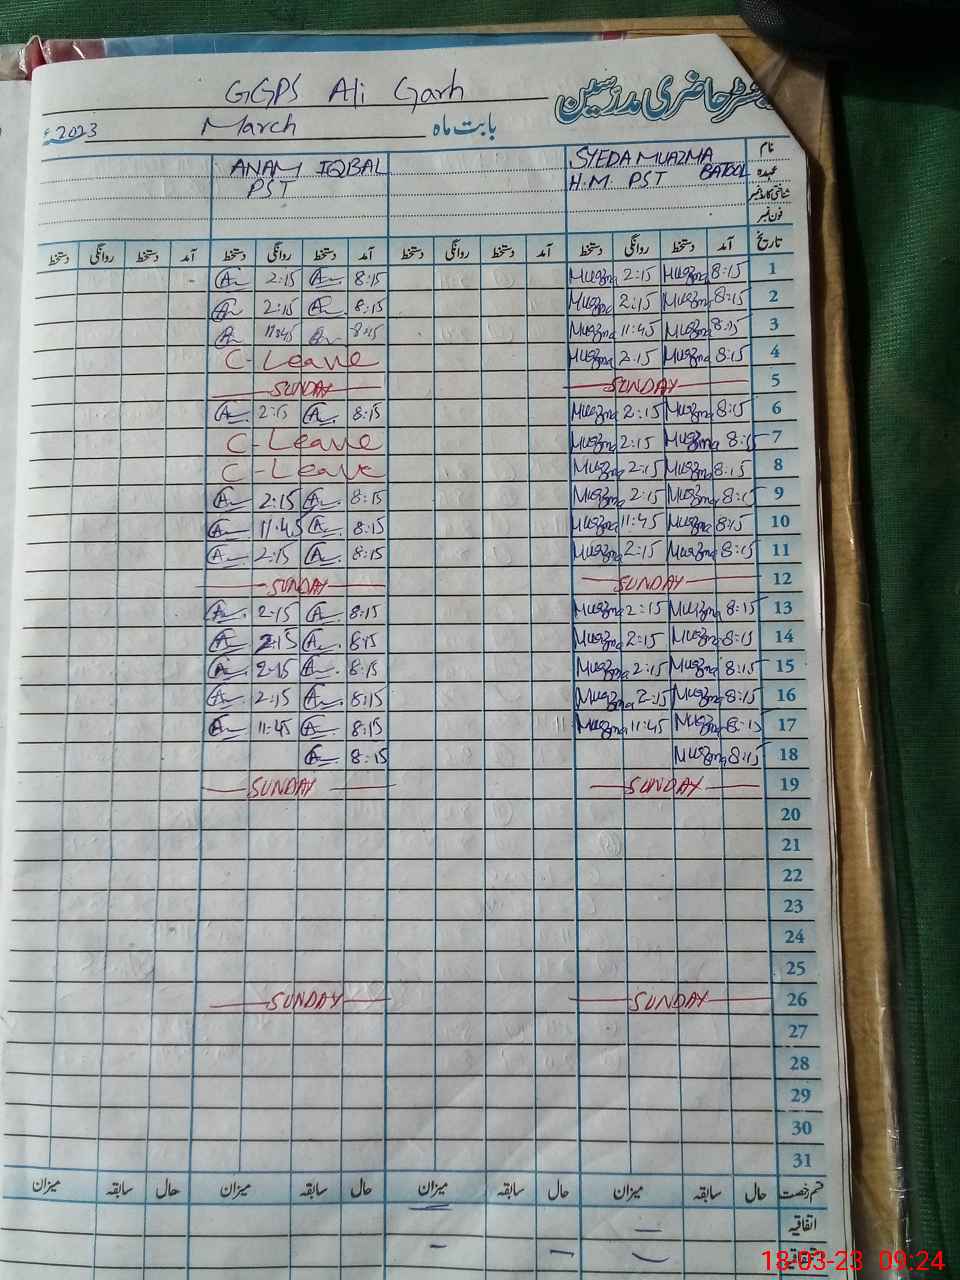 GGPS Ali Garh رجسٹر حاضری مدرسین
2023ء March بابت ماہ
ANAM IQBAL SYEDA MUAZMA BATOOL نام
PST H.M PST عہدہ
شناختی کارڈ نمبر
فون نمبر
تاریخ آمد دستخط روانگی دستخط آمد دستخط روانگی دستخط آمد دستخط روانگی دستخط آمد دستخط روانگی دستخط
2:15 8:15 Muazma 2:15 Muazma 8:15 1
2:15 8:15 Muazma 2:15 Muazma 8:15 2
11:45 8:15 Muazma 11:45 Muazma 8:15 3
C-Leave Muazma 2:15 Muazma 8:15 4
SUNDAY SUNDAY 5
2:15 8:15 Muazma 2:15 Muazma 8:15 6
C-Leave Muazma 2:15 Muazma 8:15 7
C-Leave Muazma 2:15 Muazma 8:15 8
2:15 8:15 Muazma 2:15 Muazma 8:15 9
11:45 8:15 Muazma 11:45 Muazma 8:15 10
2:15 8:15 Muazma 2:15 Muazma 8:15 11
SUNDAY SUNDAY 12
2:15 8:15 Muazma 2:15 Muazma 8:15 13
2:15 8:15 Muazma 2:15 Muazma 8:15 14
2:15 8:15 Muazma 2:15 Muazma 8:15 15
2:15 8:15 Muazma 2:15 Muazma 8:15 16
11:45 8:15 Muazma 11:45 Muazma 8:15 17
8:15 Muazma 8:15 18
SUNDAY SUNDAY 19
20
21
22
23
24
25
SUNDAY SUNDAY 26
27
28
29
30
31
قسم رخصت حال سابقہ میزان حال سابقہ میزان حال سابقہ میزان حال سابقہ میزان
اتفاقیہ
18-03-23 09:24